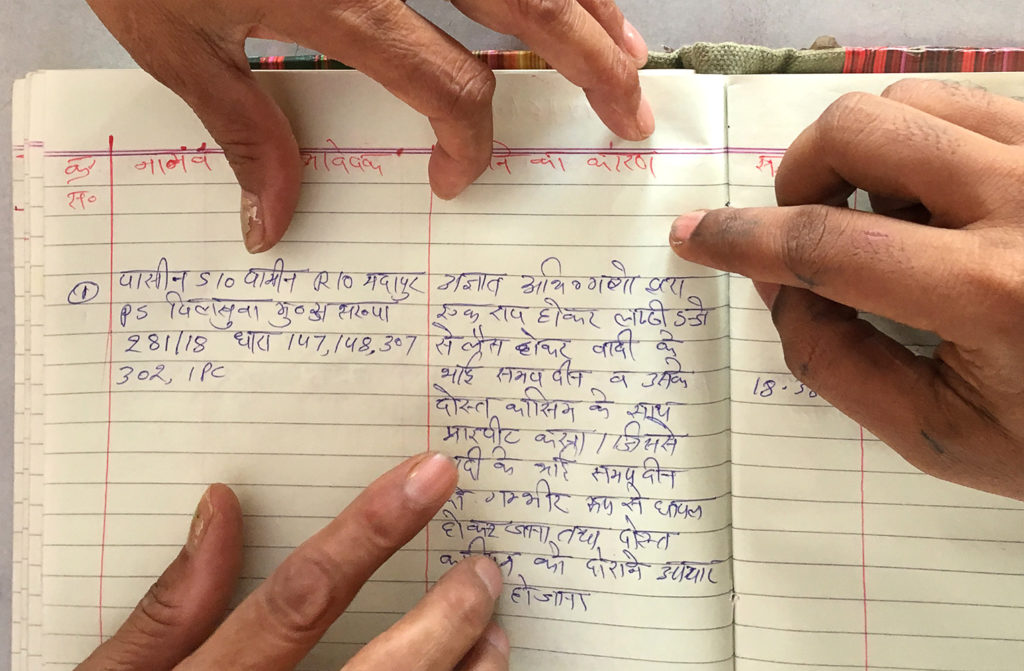 क्र नाम व आवेदक ने का कारण
स०
① यासीन S/O यामीन R/O मदापुर
PS पिलखुवा मु०अ०स०
281/18 धारा 147,148,307
302, IPC
अज्ञात अभि०गणो द्वारा
एक राय होकर लाठी डंडो
से लैस होकर वादी के
भाई समयदीन व उसके
दोस्त कासिम के साथ
मारपीट करना । जिससे
के भाई समयदीन
गम्भीर रूप से घायल
होकर जाना, तथा दोस्त
को दोराने उपचार
होजाना
18.